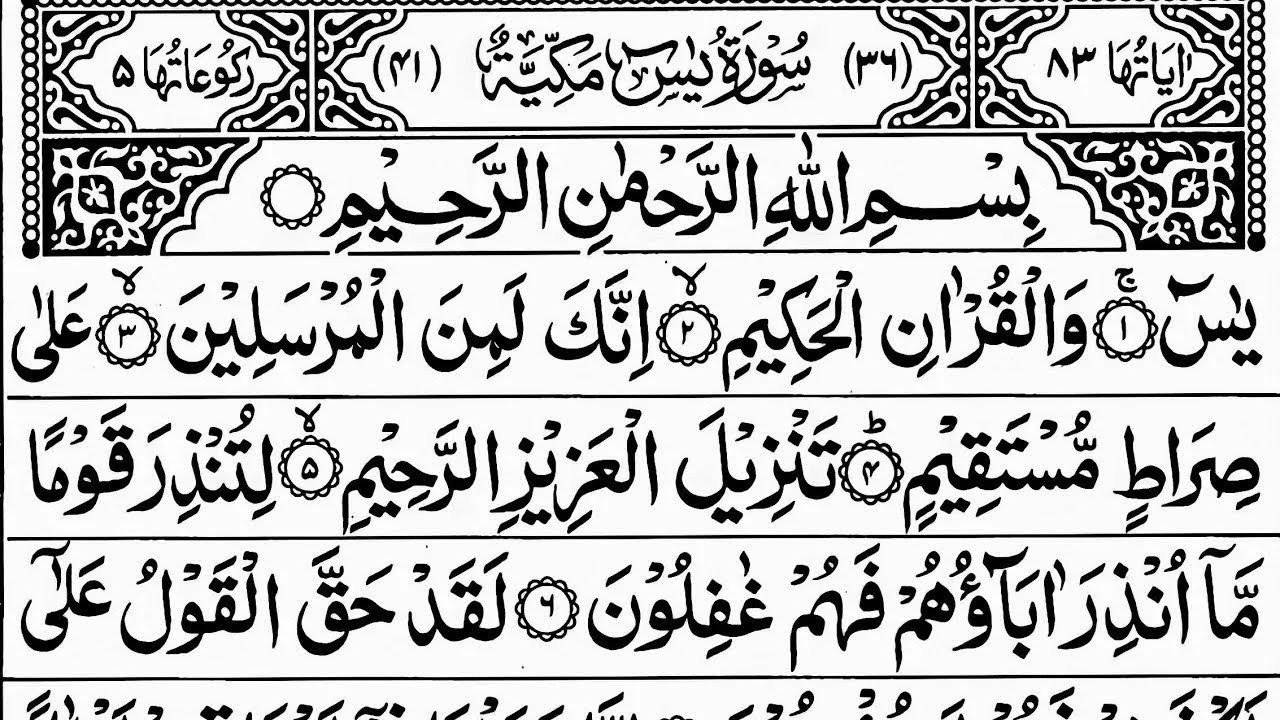 اٰيَاتُهَا ٨٣ (٣٦) سُوْرَةُ يٰسٓ مَكِّيَّةٌ (٤١) رُكُوْعَاتُهَا ۵
بِسْمِ اللّٰهِ الرَّحْمٰنِ الرَّحِيْمِ
يٰسٓ ۚ ﴿١﴾ وَالْقُرْاٰنِ الْحَكِيْمِ ۙ ﴿٢﴾ اِنَّكَ لَمِنَ الْمُرْسَلِيْنَ ۙ ﴿٣﴾ عَلٰى
صِرَاطٍ مُّسْتَقِيْمٍ ؕ ﴿۴﴾ تَنْزِيْلَ الْعَزِيْزِ الرَّحِيْمِ ۙ ﴿۵﴾ لِتُنْذِرَ قَوْمًا
مَّاۤ اُنْذِرَ اٰبَآؤُهُمْ فَهُمْ غٰفِلُوْنَ ﴿۶﴾ لَقَدْ حَقَّ الْقَوْلُ عَلٰۤى